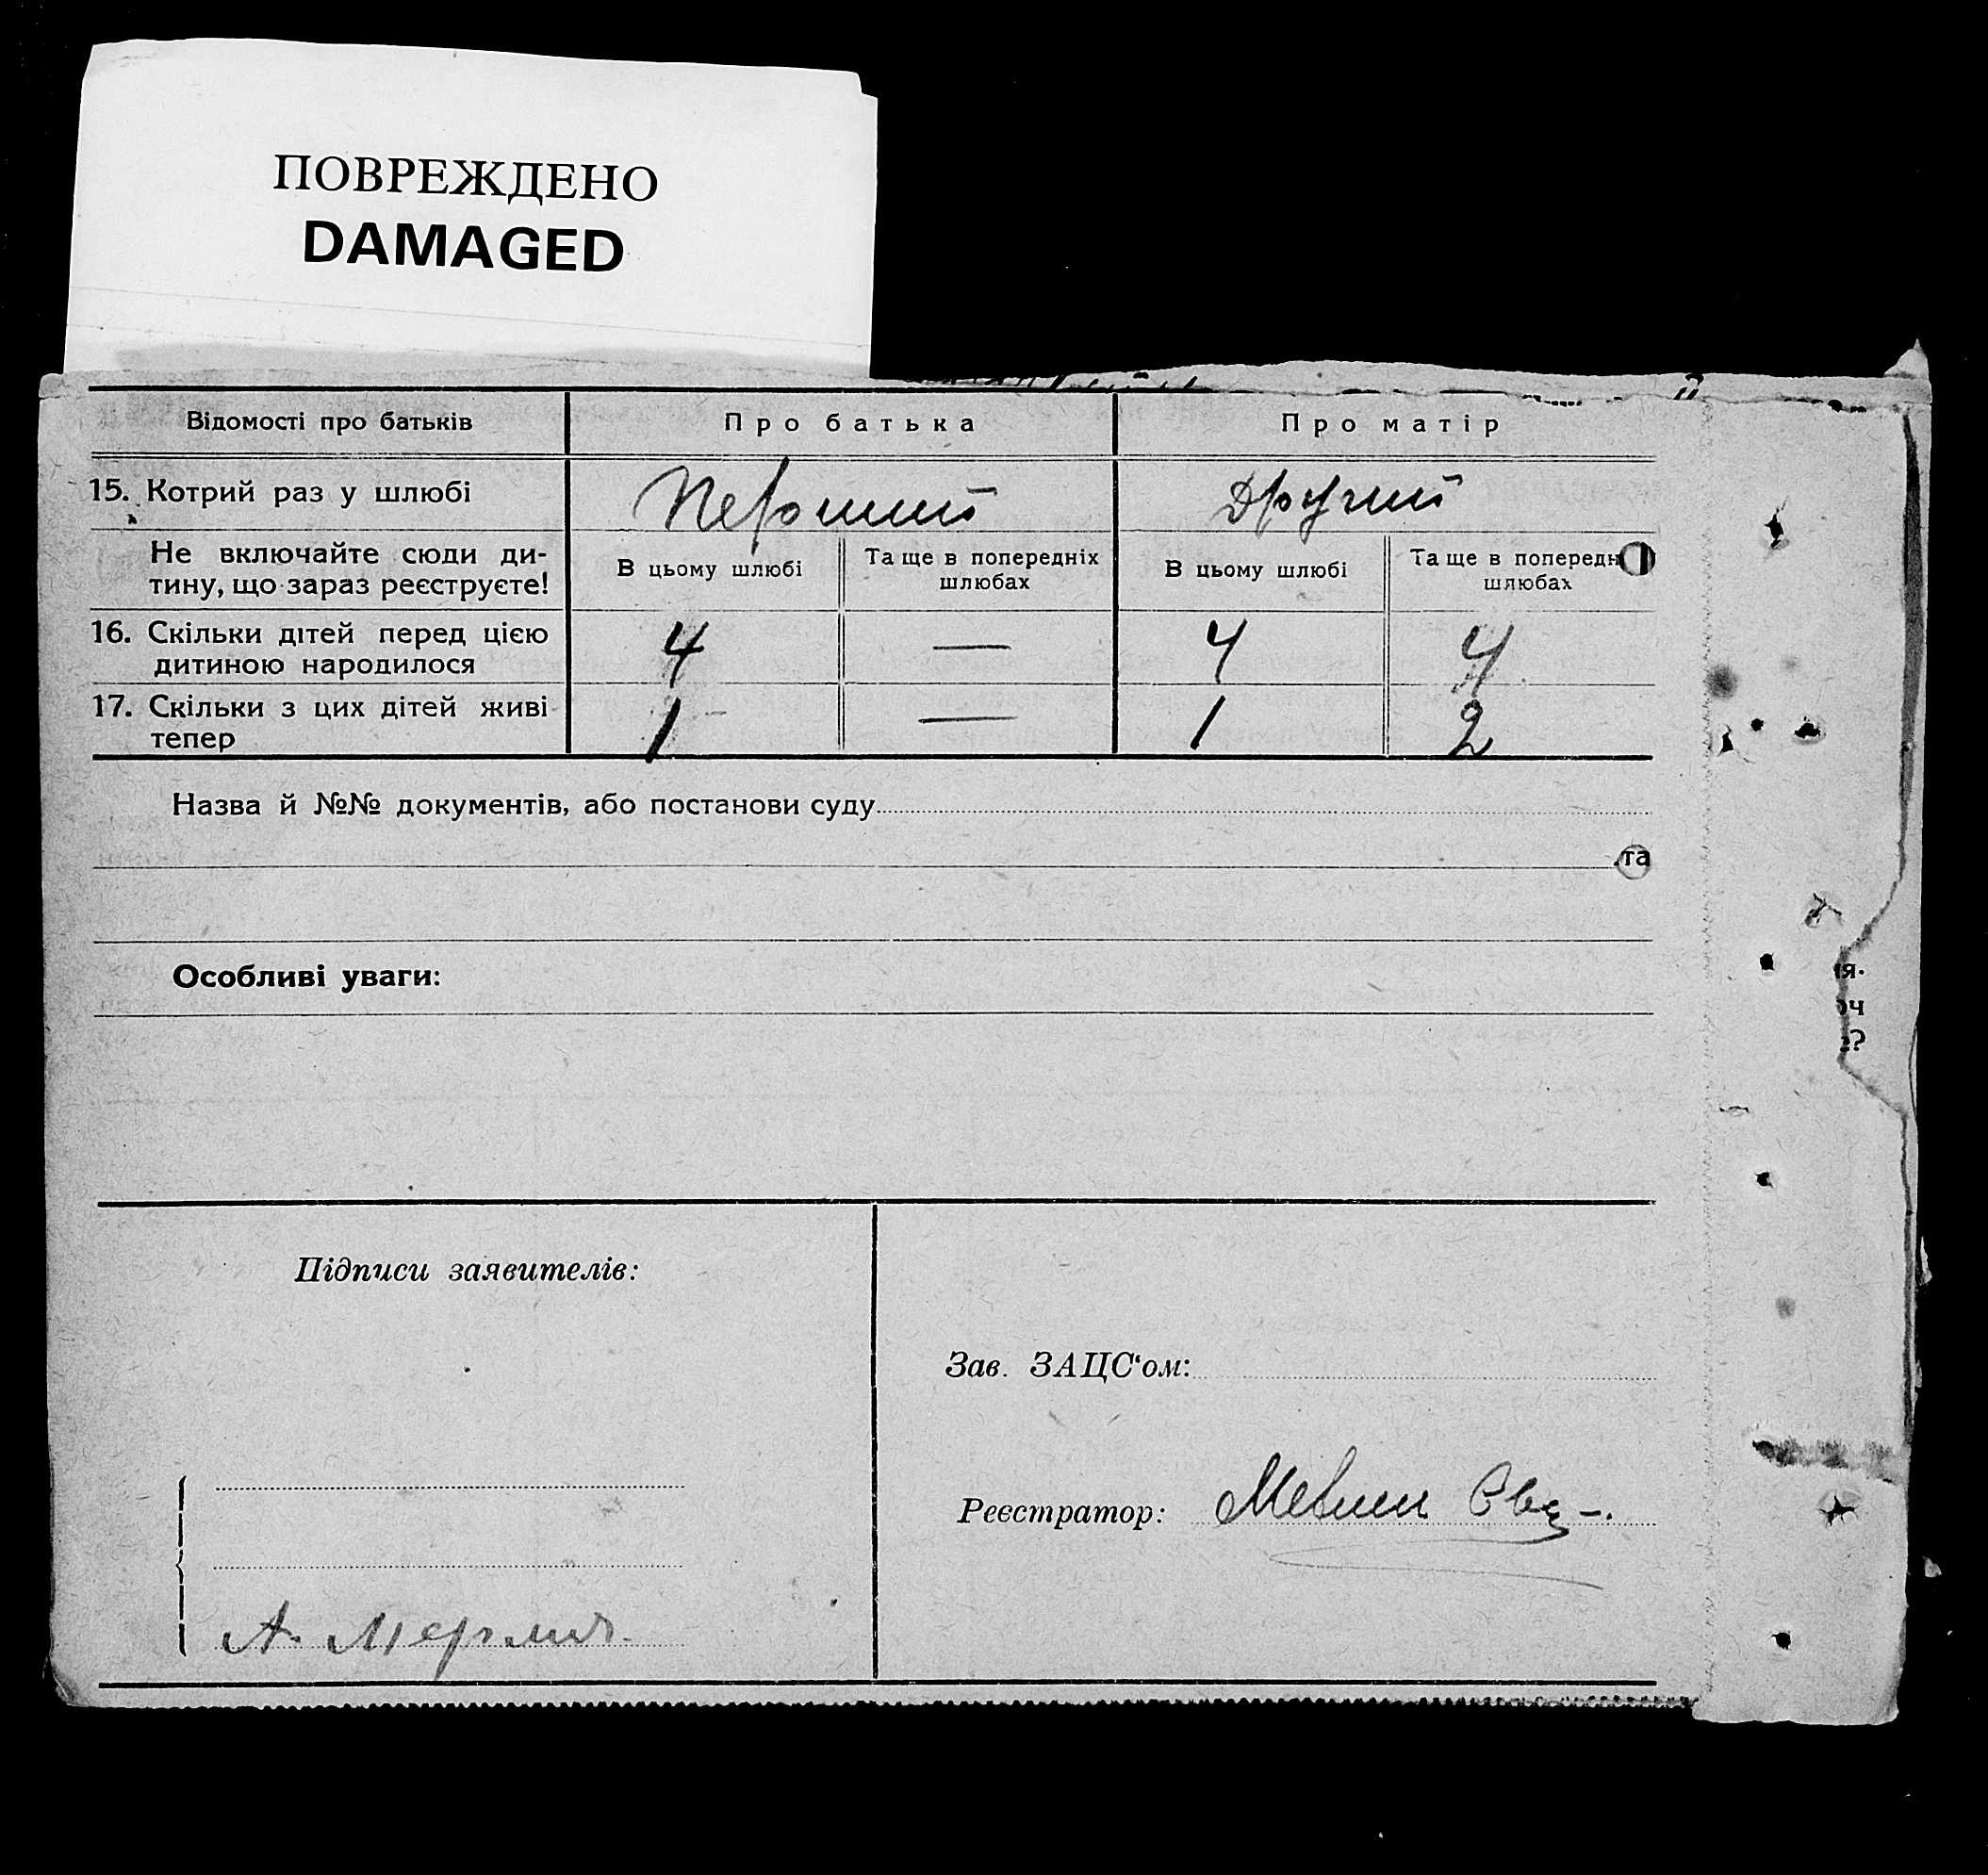 ПОВРЕЖДЕНО
DAMAGED
Відомості про батьків Про батька Про матір
15. Котрий раз у шлюбі Перший Другий
Не включайте сюди ди-
тину, що зараз реєструєте!
В цьому шлюбі Та ще в попередніх
шлюбах
В цьому шлюбі Та ще в попередн
шлюбах
16. Скільки дітей перед цією
дитиною народилося
4 — 4 4
17. Скільки з цих дітей живі
тепер
1 — 1 2
Назва й №№ документів, або постанови суду
та
Особливі уваги:
я.
оч
?
Підписи заявителів:
Зав. ЗАЦС‘ом:
Реєстратор:
А.